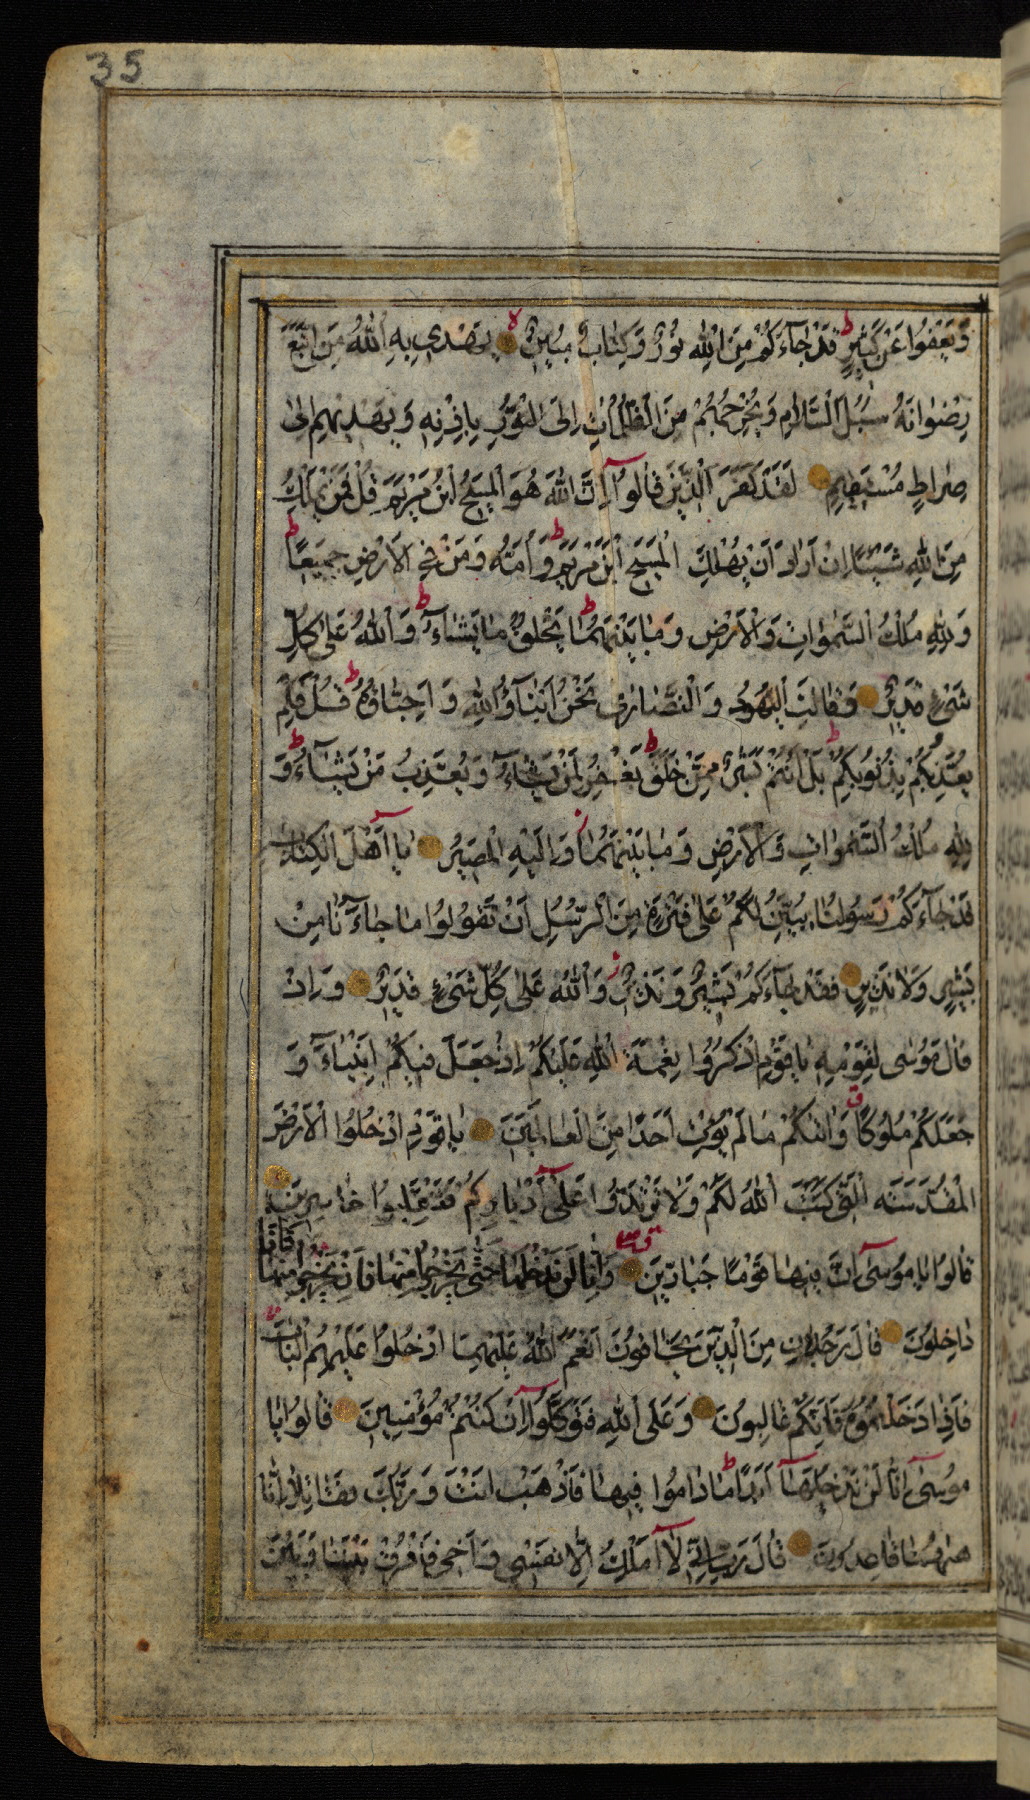 35
وَيَعْفُوا عَنْ كَثِيرٍ قَدْ جَاءَكُمْ مِنَ اللهِ نُورٌ وَكِتَابٌ مُبِينٌ يَهْدِي بِهِ اللهُ مَنِ اتَّبَعَ
رِضْوَانَهُ سُبُلَ السَّلَامِ وَيُخْرِجُهُمْ مِنَ الظُّلُمَاتِ إِلَى النُّورِ بِإِذْنِهِ وَيَهْدِيهِمْ إِلَى
صِرَاطٍ مُسْتَقِيمٍ لَقَدْ كَفَرَ الَّذِينَ قَالُوا إِنَّ اللهَ هُوَ الْمَسِيحُ ابْنُ مَرْيَمَ قُلْ فَمَنْ يَمْلِكُ
مِنَ اللهِ شَيْئًا إِنْ أَرَادَ أَنْ يُهْلِكَ الْمَسِيحَ ابْنَ مَرْيَمَ وَأُمَّهُ وَمَنْ فِي الْأَرْضِ جَمِيعًا
وَلِلَّهِ مُلْكُ السَّمَوَاتِ وَالْأَرْضِ وَمَا بَيْنَهُمَا يَخْلُقُ مَا يَشَاءُ وَاللهُ عَلَى كُلِّ
شَيْءٍ قَدِيرٌ وَقَالَتِ الْيَهُودُ وَالنَّصَارَى نَحْنُ أَبْنَاؤُ اللهِ وَأَحِبَّاؤُهُ قُلْ فَلِمَ
يُعَذِّبُكُمْ بِذُنُوبِكُمْ بَلْ أَنْتُمْ بَشَرٌ مِمَّنْ خَلَقَ يَغْفِرُ لِمَنْ يَشَاءُ وَيُعَذِّبُ مَنْ يَشَاءُ وَ
لِلَّهِ مُلْكُ السَّمَوَاتِ وَالْأَرْضِ وَمَا بَيْنَهُمَا وَإِلَيْهِ الْمَصِيرُ يَا أَهْلَ الْكِتَابِ
قَدْ جَاءَكُمْ رَسُولُنَا يُبَيِّنُ لَكُمْ عَلَى فَتْرَةٍ مِنَ الرُّسُلِ أَنْ تَقُولُوا مَا جَاءَنَا مِنْ
بَشِيرٍ وَلَا نَذِيرٍ فَقَدْ جَاءَكُمْ بَشِيرٌ وَنَذِيرٌ وَاللهُ عَلَى كُلِّ شَيْءٍ قَدِيرٌ وَإِذْ
قَالَ مُوسَى لِقَوْمِهِ يَا قَوْمِ اذْكُرُوا نِعْمَةَ اللهِ عَلَيْكُمْ إِذْ جَعَلَ فِيكُمْ أَنْبِيَاءَ وَ
جَعَلَكُمْ مُلُوكًا وَآتَاكُمْ مَا لَمْ يُؤْتِ أَحَدًا مِنَ الْعَالَمِينَ يَا قَوْمِ ادْخُلُوا الْأَرْضَ
الْمُقَدَّسَةَ الَّتِي كَتَبَ اللهُ لَكُمْ وَلَا تَرْتَدُّوا عَلَى أَدْبَارِكُمْ فَتَنْقَلِبُوا خَاسِرِينَ
قَالُوا يَا مُوسَى إِنَّ فِيهَا قَوْمًا جَبَّارِينَ وَإِنَّا لَنْ نَدْخُلَهَا حَتَّى يَخْرُجُوا مِنْهَا فَإِنْ يَخْرُجُوا مِنْهَا فَإِنَّا
دَاخِلُونَ قَالَ رَجُلَانِ مِنَ الَّذِينَ يَخَافُونَ أَنْعَمَ اللهُ عَلَيْهِمَا ادْخُلُوا عَلَيْهِمُ الْبَابَ
فَإِذَا دَخَلْتُمُوهُ فَإِنَّكُمْ غَالِبُونَ وَعَلَى اللهِ فَتَوَكَّلُوا إِنْ كُنْتُمْ مُؤْمِنِينَ قَالُوا يَا
مُوسَى إِنَّا لَنْ نَدْخُلَهَا أَبَدًا مَا دَامُوا فِيهَا فَاذْهَبْ أَنْتَ وَرَبُّكَ فَقَاتِلَا إِنَّا
هَهُنَا قَاعِدُونَ قَالَ رَبِّ إِنِّي لَا أَمْلِكُ إِلَّا نَفْسِي وَأَخِي فَافْرُقْ بَيْنَنَا وَبَيْنَ